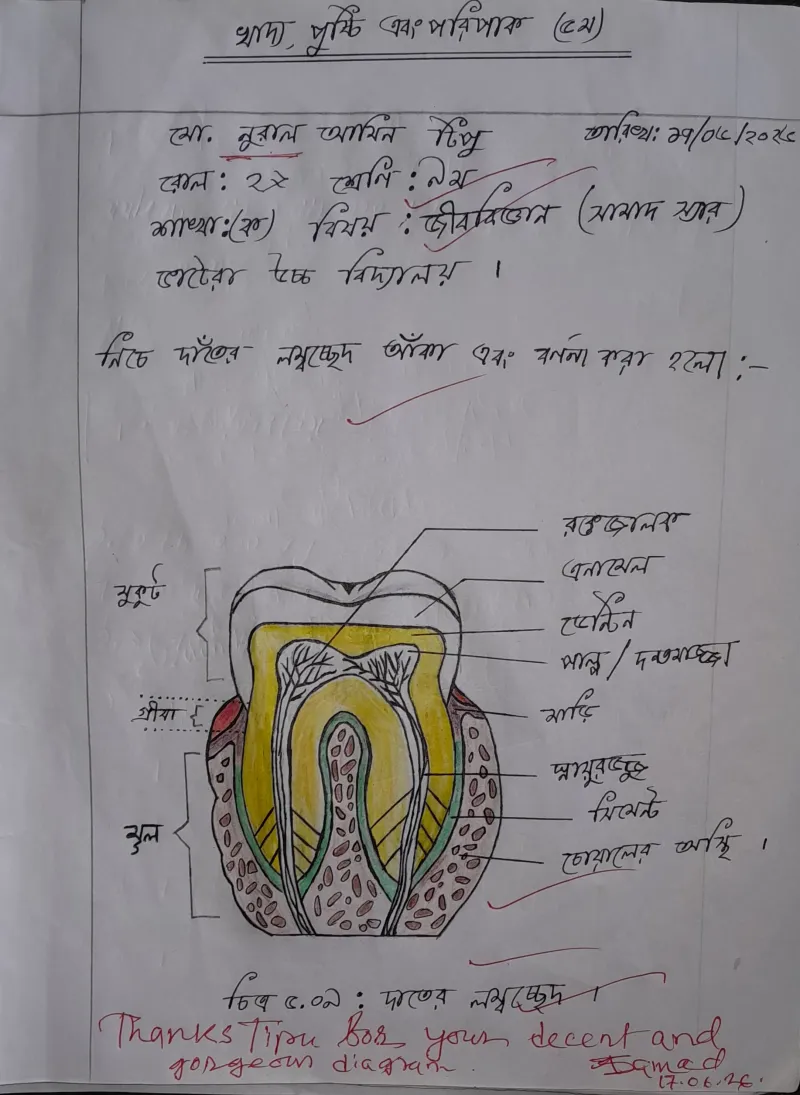 খাদ্য, পুষ্টি এবং পরিপাক (৫ম)
মো. নুরাল আমিন টিপু
তারিখ: ১৭/০৬/২০২৬
রোল: ২২ শ্রেণি: ৯ম
শাখা:(ক) বিষয়: জীববিজ্ঞান (সামাদ স্যার)
ভাটেরা উচ্চ বিদ্যালয়।
নিচে দাঁতের লম্বচ্ছেদ আঁকা এবং বর্ণনা করা হলো:-
রক্তজালক
এনামেল
মুকুট
ডেন্টিন
পাল্প/দন্তমজ্জা
গ্রীবা
মাড়ি
স্নায়ুরজ্জু
সিমেন্ট
মূল
চোয়ালের অস্থি।
চিত্র ৫.০৯: দাতের লম্বচ্ছেদ।
Thanks Tipu for your decent and
gorgeous diagram.
Samad
17.06.26.